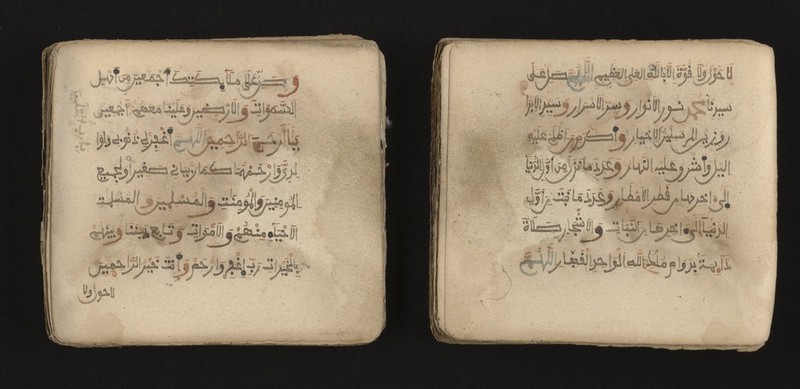 وصل على ملائكتك أجمعين من أهل
السموات والأرضين وعلينا معهم أجمعين
يا أرحم الراحمين اللهم اغفر لي ذنوبي ولوا
لدي وارحمهما كما ربياني صغيرا ولجميع
المومنين والمومنت والمسلمين والمسلمت
الاحياء منهم والاموات وتابع بيننا وبينهم
بالخيرات رب اغفر وارحم وأنت خير الراحمين
لا حول ولا
لا حول ولا قوة الا بالله العلي العظيم اللهم صل على
سيدنا محمد نور الانوار وسر الاسرار وسيد الابرا
ر وزين المرسلين الاخيار وأكرم من اظلم عليه
اليل وأشرق عليه النهار وعدد ما نزل من أول الدنيا
الى اخرها من قطر الامطار وعدد ما نبت من أول
الدنيا الى اخرها من النبات والأشجار صلاة
دايمة بدوام ملك الله الواحد القهار اللهم